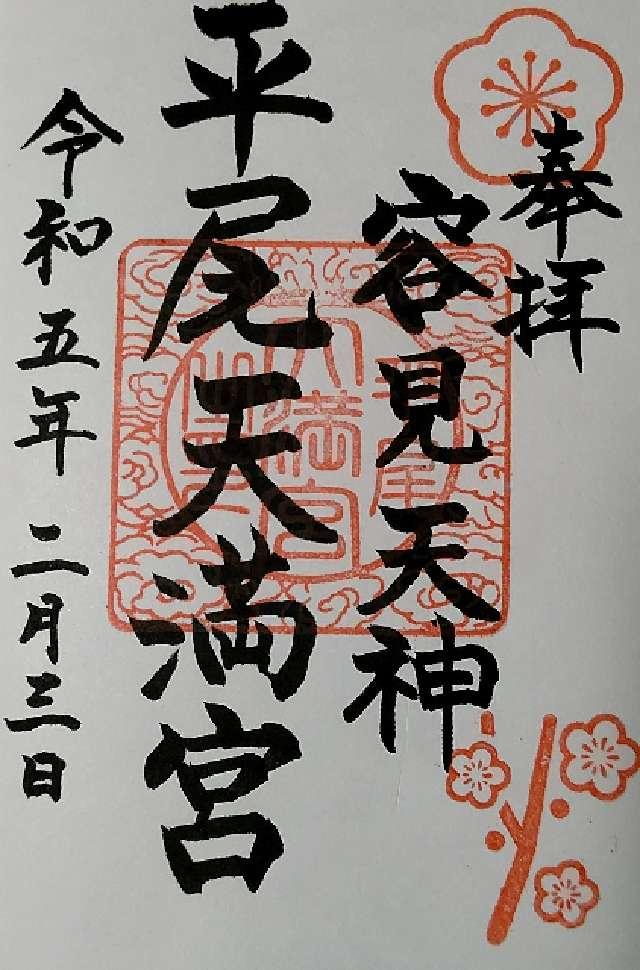 奉拝
容見天神
平尾天満宮
令和五年 二月三日